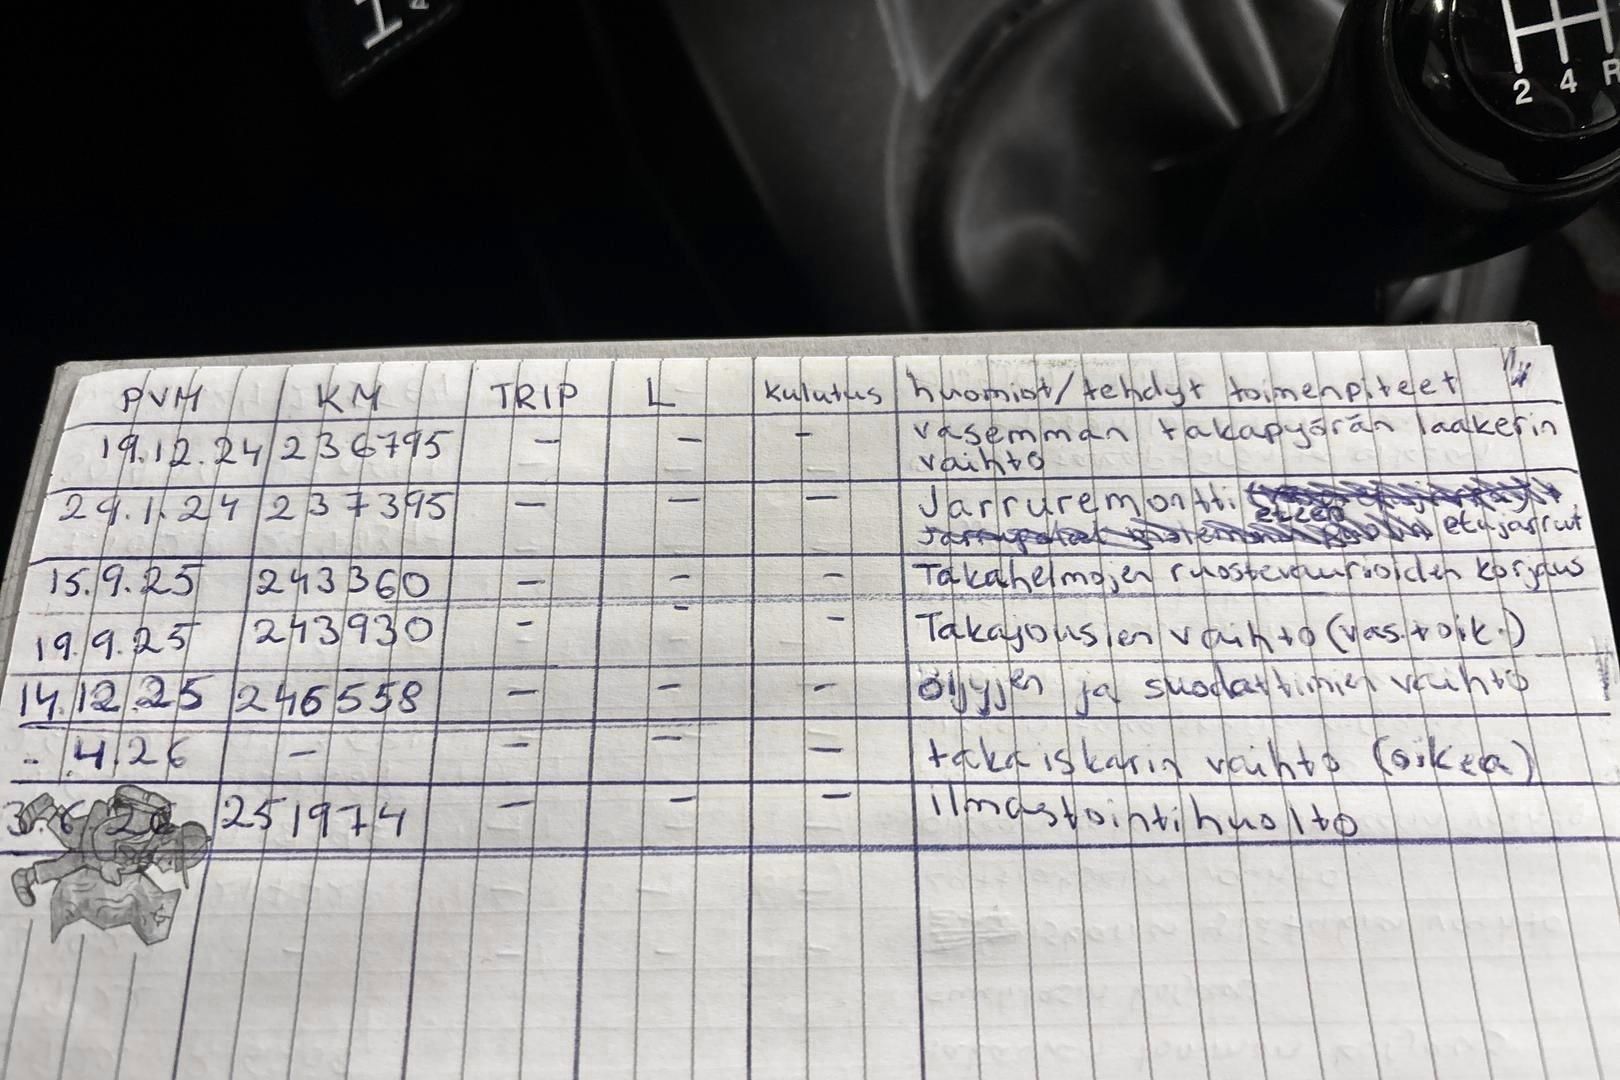 2 4 R
PVM KM TRIP L kulutus huomiot/tehdyt toimenpiteet
19.12.24 236795 - - - vasemman takapyörän laakerin
vaihto
29.1.24 237395 - - - Jarruremontti
etujarrut
15.9.25 243360 - - - Takahelmojen ruostevaurioiden korjaus
19.9.25 243930 - - - Takajousien vaihto (vas.+oik.)
14.12.25 246558 - - - öljyjen ja suodattimien vaihto
- . 4.26 - - - - takaiskarin vaihto (oikea)
251974 - - - ilmastointihuolto